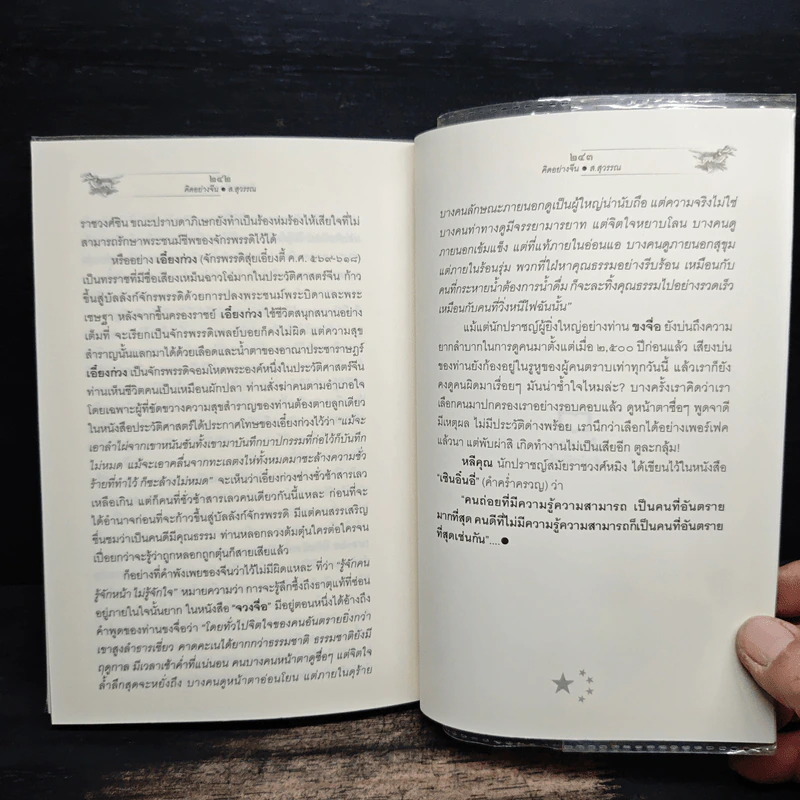 ๒๔๒
คิดอย่างจีน ● ส.สุวรรณ
ราชวงศ์ซิน ขณะปราบดาภิเษกยังทำเป็นร้องห่มร้องให้เสียใจที่ไม่
สามารถรักษาพระชนม์ชีพของจักรพรรดิไว้ได้
หรืออย่าง เอี๋ยงก่วง (จักรพรรดิสุ่ยเอี๋ยงตี้ ค.ศ. ๕๖๙-๖๑๘)
เป็นทรราชที่มีชื่อเสียงเหม็นฉาวโฉ่มากในประวัติศาสตร์จีน ก้าว
ขึ้นสู่บัลลังก์จักรพรรดิด้วยการปลงพระชนม์พระบิดาและพระ
เชษฐา หลังจากขึ้นครองราชย์ เอี๋ยงก่วง ใช้ชีวิตสนุกสนานอย่าง
เต็มที่ จะเรียกเป็นจักรพรรดิเพลย์บอยคงไม่ผิด แต่ความสุข
สำราญนั้นแลกมาได้ด้วยเลือดและน้ำตาของอาณาประชาราษฎร์
เอี๋ยงก่วง เป็นจักรพรรดิจอมโหดพระองค์หนึ่งในประวัติศาสตร์จีน
ท่านเห็นชีวิตคนเป็นเหมือนผักปลา ท่านสั่งฆ่าคนตามอำเภอใจ
โดยเฉพาะผู้ที่ขัดขวางความสุขสำราญของท่านต้องตายลูกเดียว
ในหนังสือประวัติศาสตร์ได้ประกาศโทษของเอี๋ยงก่วงไว้ว่า "แม้จะ
เอาลำไผ่จากเขาหนันซันทั้งเขามาบันทึกบาปกรรมที่ก่อไว้ก็บันทึก
ไม่หมด แม้จะเอาคลื่นจากทะเลตงไห่ทั้งหมดมาชะล้างความชั่ว
ร้ายที่ทำไว้ ก็ชะล้างไม่หมด" จะเห็นว่าเอี๋ยงก่วงช่างชั่วช้าสารเลว
เหลือเกิน แต่ก็คนที่ชั่วช้าสารเลวคนเดียวกันนี้แหละ ก่อนที่จะ
ได้อำนาจก่อนที่จะก้าวขึ้นสู่บัลลังก์จักรพรรดิ มีแต่คนสรรเสริญ
ชื่นชมว่าเป็นคนดีมีคุณธรรม ท่านหลอกลวงต้มตุ๋นใครต่อใครจน
เปื่อยกว่าจะรู้ว่าถูกหลอกถูกตุ๋นก็สายเสียแล้ว
ก็อย่างที่คำพังเพยของจีนว่าไว้ไม่มีผิดแหละ ที่ว่า "รู้จักคน
รู้จักหน้า ไม่รู้จักใจ" หมายความว่า การจะรู้ลึกซึ้งถึงธาตุแท้ที่ซ่อน
อยู่ภายในใจนั้นยาก ในหนังสือ "จวงจื่อ" มีอยู่ตอนหนึ่งได้อ้างถึง
คำพูดของท่านขงจื่อว่า "โดยทั่วไปจิตใจของคนอันตรายยิ่งกว่า
เขาสูงลำธารเชี่ยว คาดคะเนได้ยากกว่าธรรมชาติ ธรรมชาติยังมี
ฤดูกาล มีเวลาเช้าค่ำที่แน่นอน คนบางคนหน้าตาดูซื่อๆ แต่จิตใจ
ล้ำลึกสุดจะหยั่งถึง บางคนดูหน้าตาอ่อนโยน แต่ภายในดุร้าย
๒๔๓
คิดอย่างจีน ● ส.สุวรรณ
บางคนลักษณะภายนอกดูเป็นผู้ใหญ่น่านับถือ แต่ความจริงไม่ใช่
บางคนท่าทางดูมีจรรยามารยาท แต่จิตใจหยาบโลน บางคนดู
ภายนอกเข้มแข็ง แต่ที่แท้ภายในอ่อนแอ บางคนดูภายนอกสุขุม
แต่ภายในร้อนรุ่ม พวกที่ใฝ่หาคุณธรรมอย่างรีบร้อน เหมือนกับ
คนที่กระหายน้ำต้องการน้ำดื่ม ก็จะละทิ้งคุณธรรมไปอย่างรวดเร็ว
เหมือนกับคนที่วิ่งหนีไฟฉันนั้น"
แม้แต่นักปราชญ์ผู้ยิ่งใหญ่อย่างท่าน ขงจื่อ ยังบ่นถึงความ
ยากลำบากในการดูคนมาตั้งแต่เมื่อ ๒,๕๐๐ ปีก่อนแล้ว เสียงบ่น
ของท่านยังก้องอยู่ในรูหูของผู้คนตราบเท่าทุกวันนี้ แล้วเราก็ยัง
คงดูคนผิดมาเรื่อยๆ มันน่าช้ำใจไหมล่ะ? บางครั้งเราคิดว่าเรา
เลือกคนมาปกครองเราอย่างรอบคอบแล้ว ดูหน้าตาซื่อๆ พูดจาดี
มีเหตุผล ไม่มีประวัติด่างพร้อย เรานึกว่าเลือกได้อย่างเพอร์เฟค
แล้วนา แต่พับผ่าสิ เกิดทำงานไม่เป็นเสียอีก ตูละกลุ้ม!
หลีคุณ นักปราชญ์สมัยราชวงศ์หมิง ได้เขียนไว้ในหนังสือ
"เซินอิ๋นอี่" (คำคร่ำครวญ) ว่า
"คนถ่อยที่มีความรู้ความสามารถ เป็นคนที่อันตราย
มากที่สุด คนดีที่ไม่มีความรู้ความสามารถก็เป็นคนที่อันตราย
ที่สุดเช่นกัน"....●